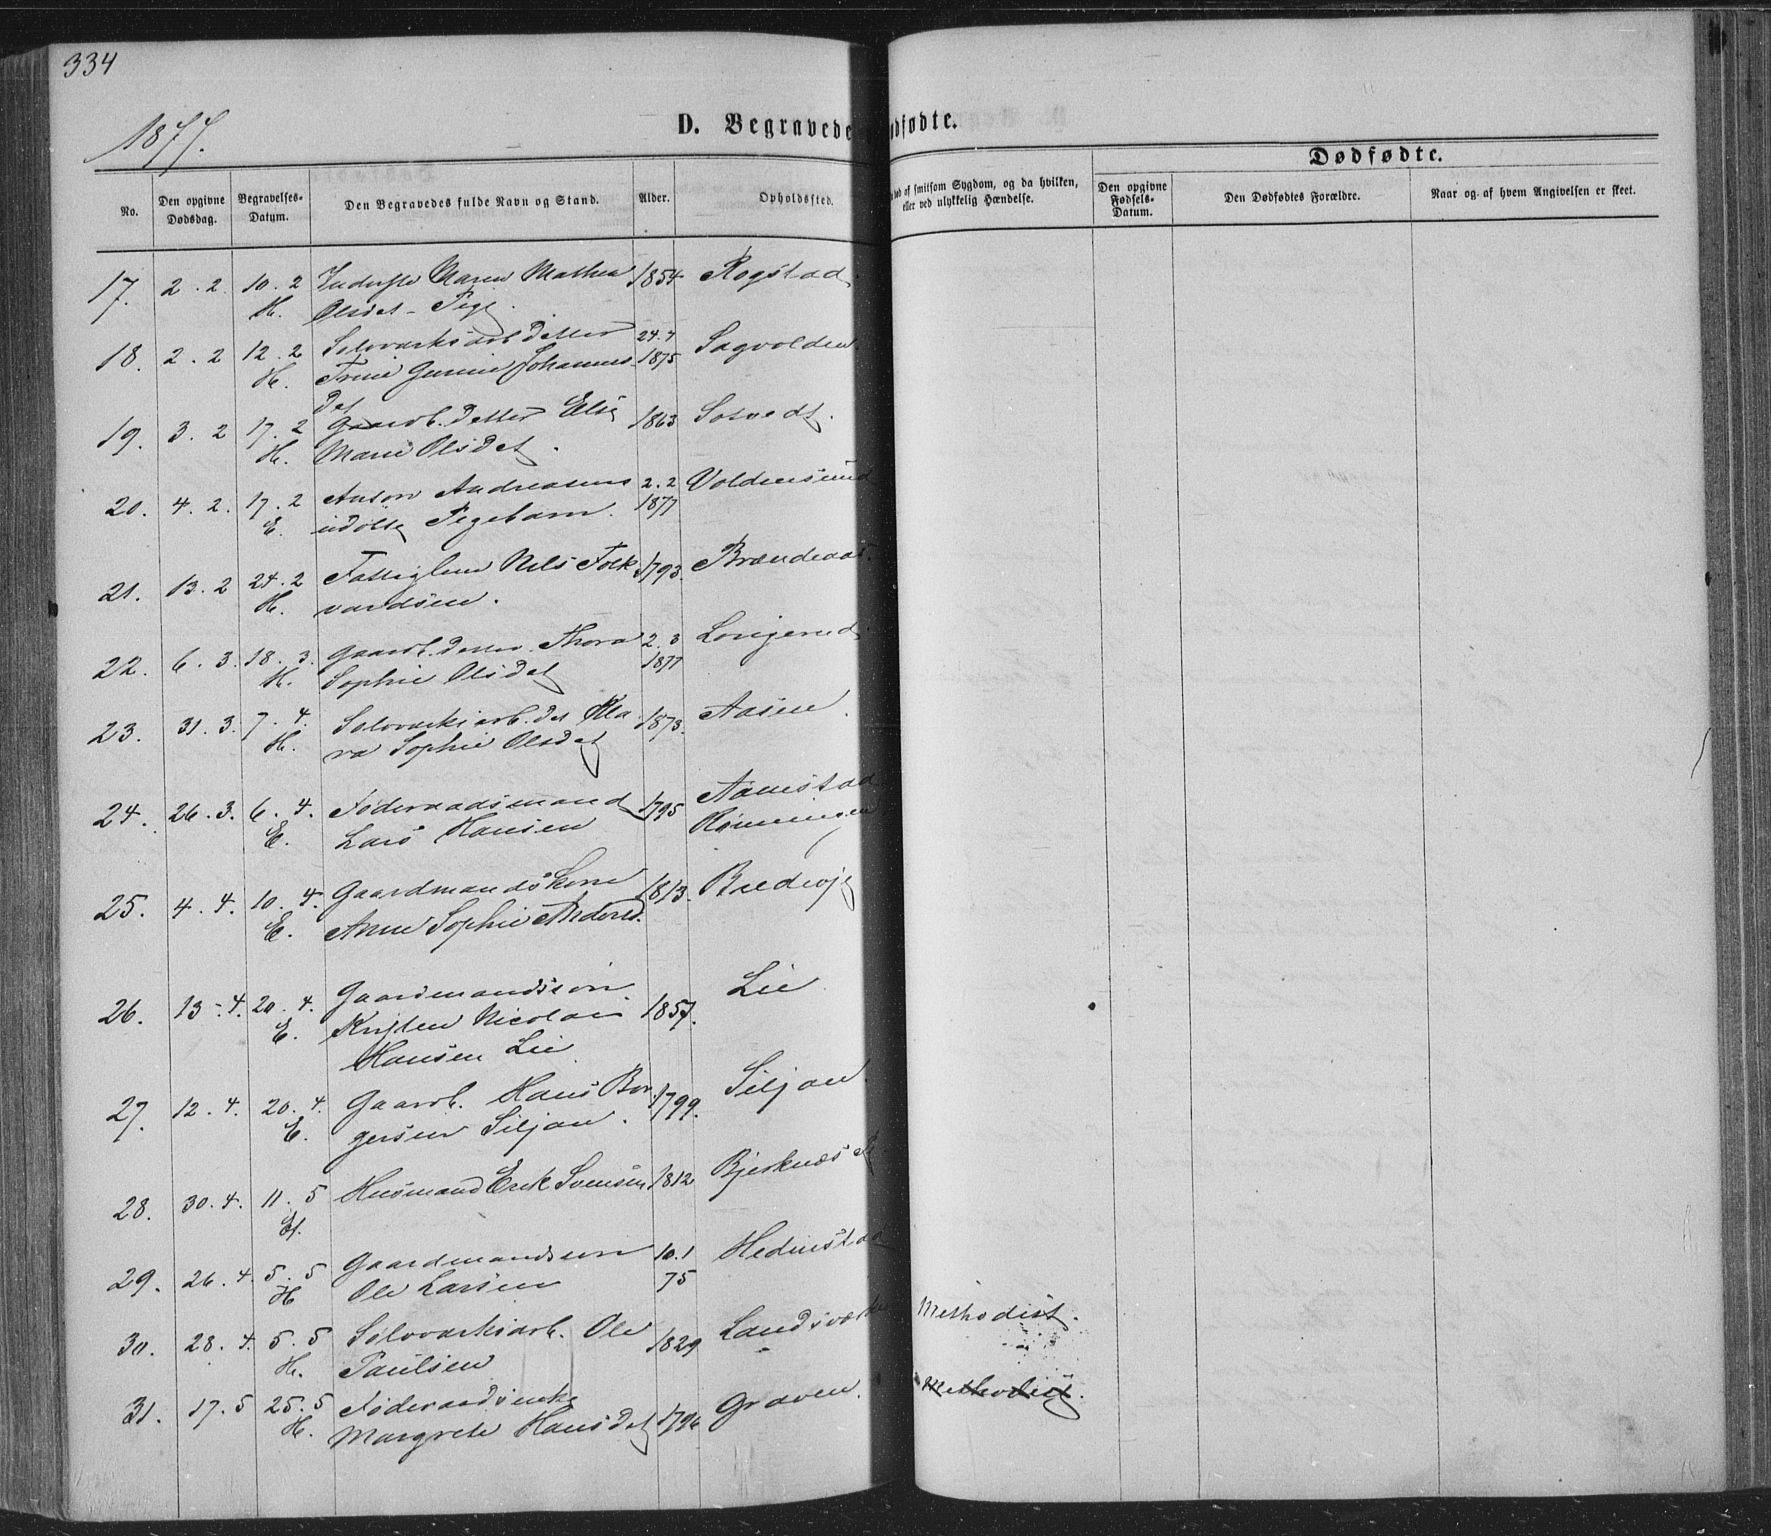 334
1877.
D. Begravede
dfødte.
Dødfødte.
No.
Den opgivne Dødsdag.
Begravelses-Datum.
Den Begravedes fulde Navn og Stand.
Alder.
Opholdssted.
af smitsom Sygdom, og da hvilken, eller ved ulykkelig Hændelse.
Den opgivne Fødsels-Datum.
Den Dødfødtes Forældre.
Naar og af hvem Angivelsen er skeet.
17. 2.2. 10.2 Inderste Maren Mathea 1854 Rogstad
H. Olsdet - Pige.
18. 2.2 12.2 Sølvverksarb. Detter 24.7 Sagvolden
H. Trine Gurine Johannes- 1875
det
19. 3.2 17.2 Gaardb. Detter Else 1863 Sotvedt.
H. Marie Olsdet.
20. 4.2. 17.2 Anton Andreasens 2.2 Voldensund
E. udøbte Pigebarn. 1877
21. 13.2 24.2 Fattiglem Nels Folk- 1793. Brændeaas.
H. vardsen.
22. 6.3. 18.3. Gaardb. Detter Thora 2.3 Lorgerud
H. Sophie Olsdet 1877
23. 31.3. 7.4. Sølvverksarb. det Kla- 1873. Aasen.
H. ra Sophie Olsdet
24. 26.3. 6.4. Føderaadsmand 1795 Aamstad
E. Lars Hansen Rønningen
25. 4.4. 10.4. Gaardmandskone 1813.
E. Anne Sophie Andersd.
26. 13-4. 20.4. Gaardmandssøn 1857. Lie
E. Kristen Nicolai
Hansen Lie
27. 12.4. 20.4. Gaardb. Hans Bor- 1799. Siljan.
E. gersen Siljan.
28. 30.4. 11.5 Husmand Erik Svensen 1812 Bjerknæs
Ef.
29. 26.4. 5.5 Gaardmandssøn 10.1 Hedenstad
H Ole Larsen 75
30. 28.4. 5.5 Sølvverksarb. Ole 1829 Landsværk Methodist.
H. Paulsen
31. 17.5 25.5 Føderaadsenke 1796 Graven. Methodist.
H. Margrete Hansdet